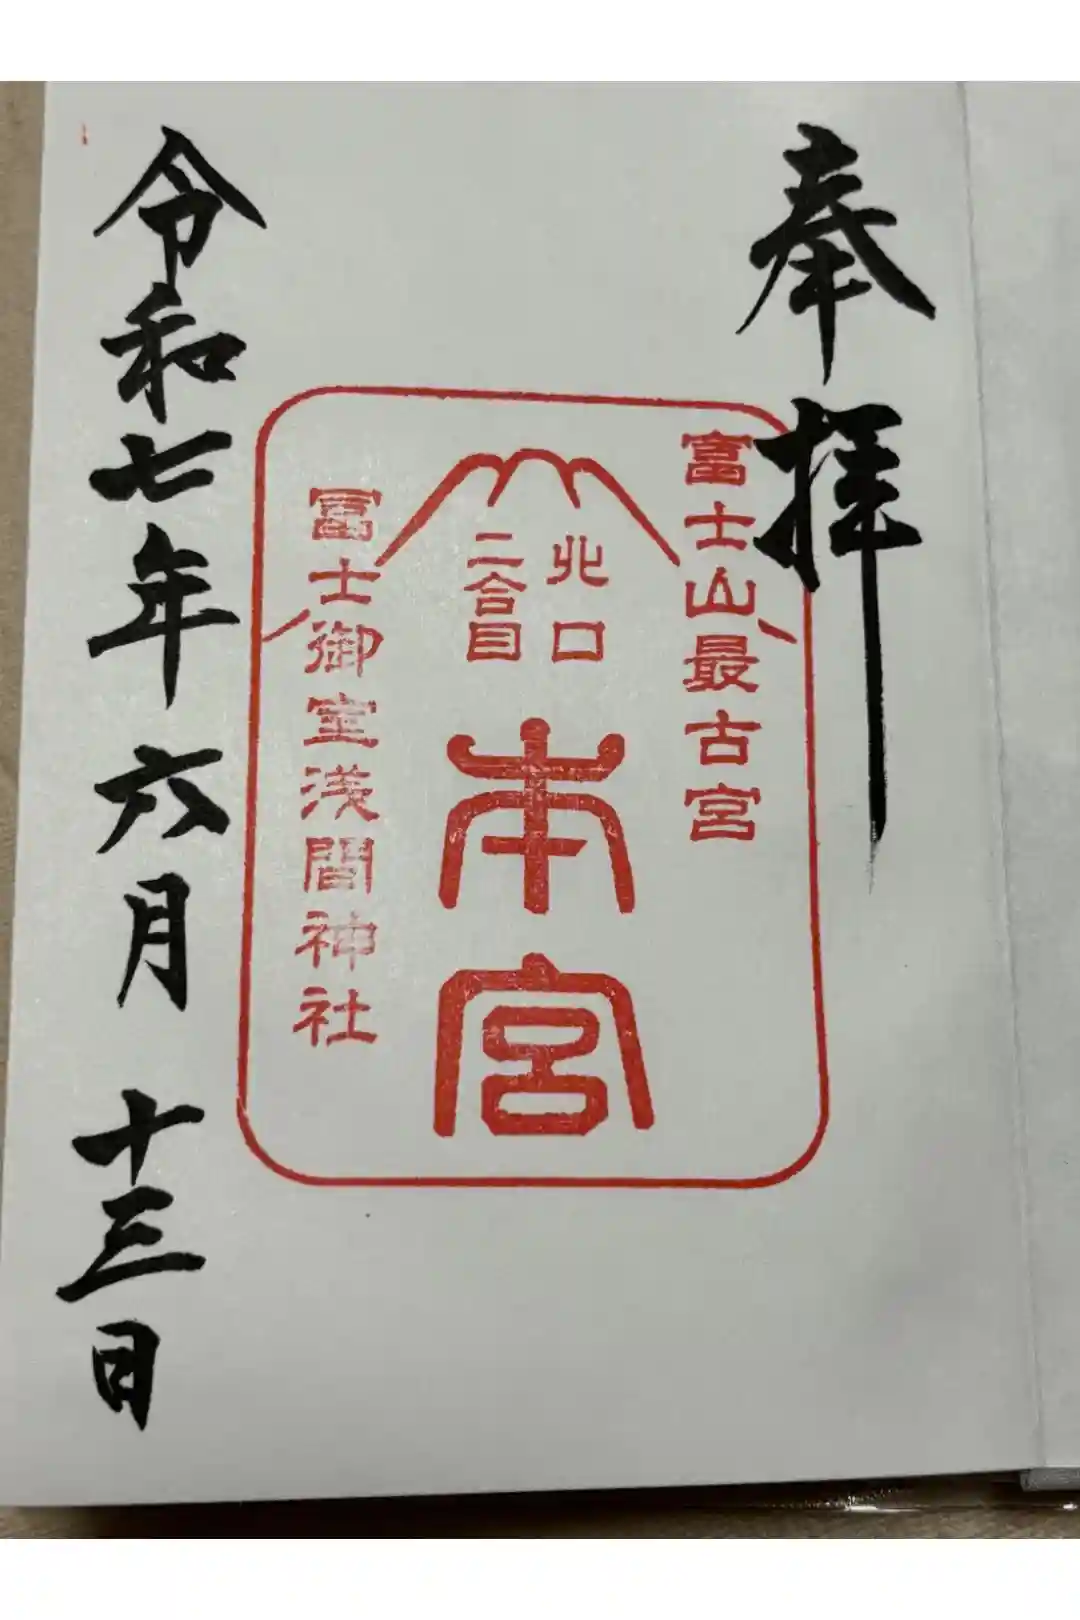 奉拝
富士山最古宮
北口
二合目
本宮
冨士御室浅間神社
令和七年六月十三日